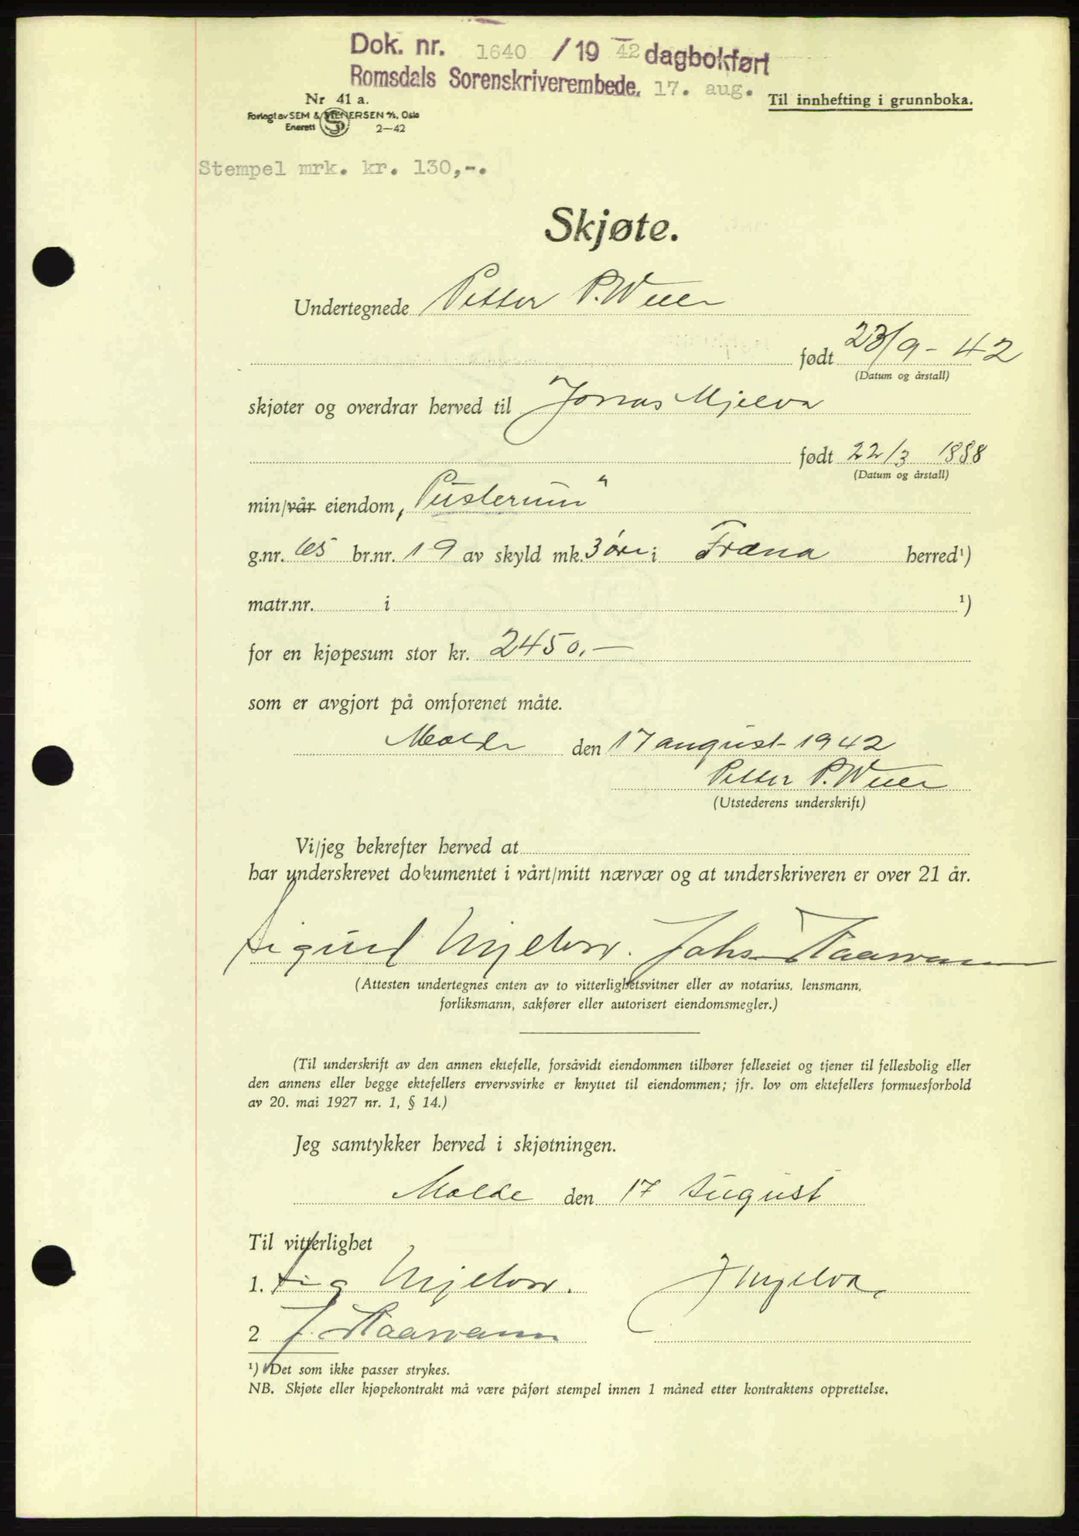 Dok. nr. 1640 / 19 42 dagbokført
Romsdals Sorenskriverembede. 17. aug.
Til innhefting i grunnboka.
Nr 41 a.
Forlegt av SEM & STENERSEN A/S, Oslo
Enerett 2-42
Stempel mrk. kr. 130,-.
Skjøte.
Undertegnede Petter P.
født 23/9 - 42
(Datum og årstall)
skjøter og overdrar herved til Jonas Mjelva
født 22/3 1888
(Datum og årstall)
min/vår eiendom „Pusterum"
g.nr. 65 br.nr. 19 av skyld mk. 3 øre i Fræna herred¹)
matr.nr. i ¹)
for en kjøpesum stor kr. 2450.-
som er avgjort på omforenet måte.
Molde den 17 august 1942
Petter P.
(Utstederens underskrift)
Vi/jeg bekrefter herved at
har underskrevet dokumentet i vårt/mitt nærvær og at underskriveren er over 21 år.
Sigurd Mjelva.
(Attesten undertegnes enten av to vitterlighetsvitner eller av notarius, lensmann,
forliksmann, sakfører eller autorisert eiendomsmegler.)
(Til underskrift av den annen ektefelle, forsåvidt eiendommen tilhører felleseiet og tjener til fellesbolig eller
den annens eller begge ektefellers ervervsvirke er knyttet til eiendommen; jfr. lov om ektefellers formuesforhold
av 20. mai 1927 nr. 1, § 14.)
Jeg samtykker herved i skjøtningen.
Molde den 17 August
Til vitterlighet
1. Sig Mjelva. J Mjelva.
2 J.
¹) Det som ikke passer strykes.
NB. Skjøte eller kjøpekontrakt må være påført stempel innen 1 måned etter kontraktens opprettelse.